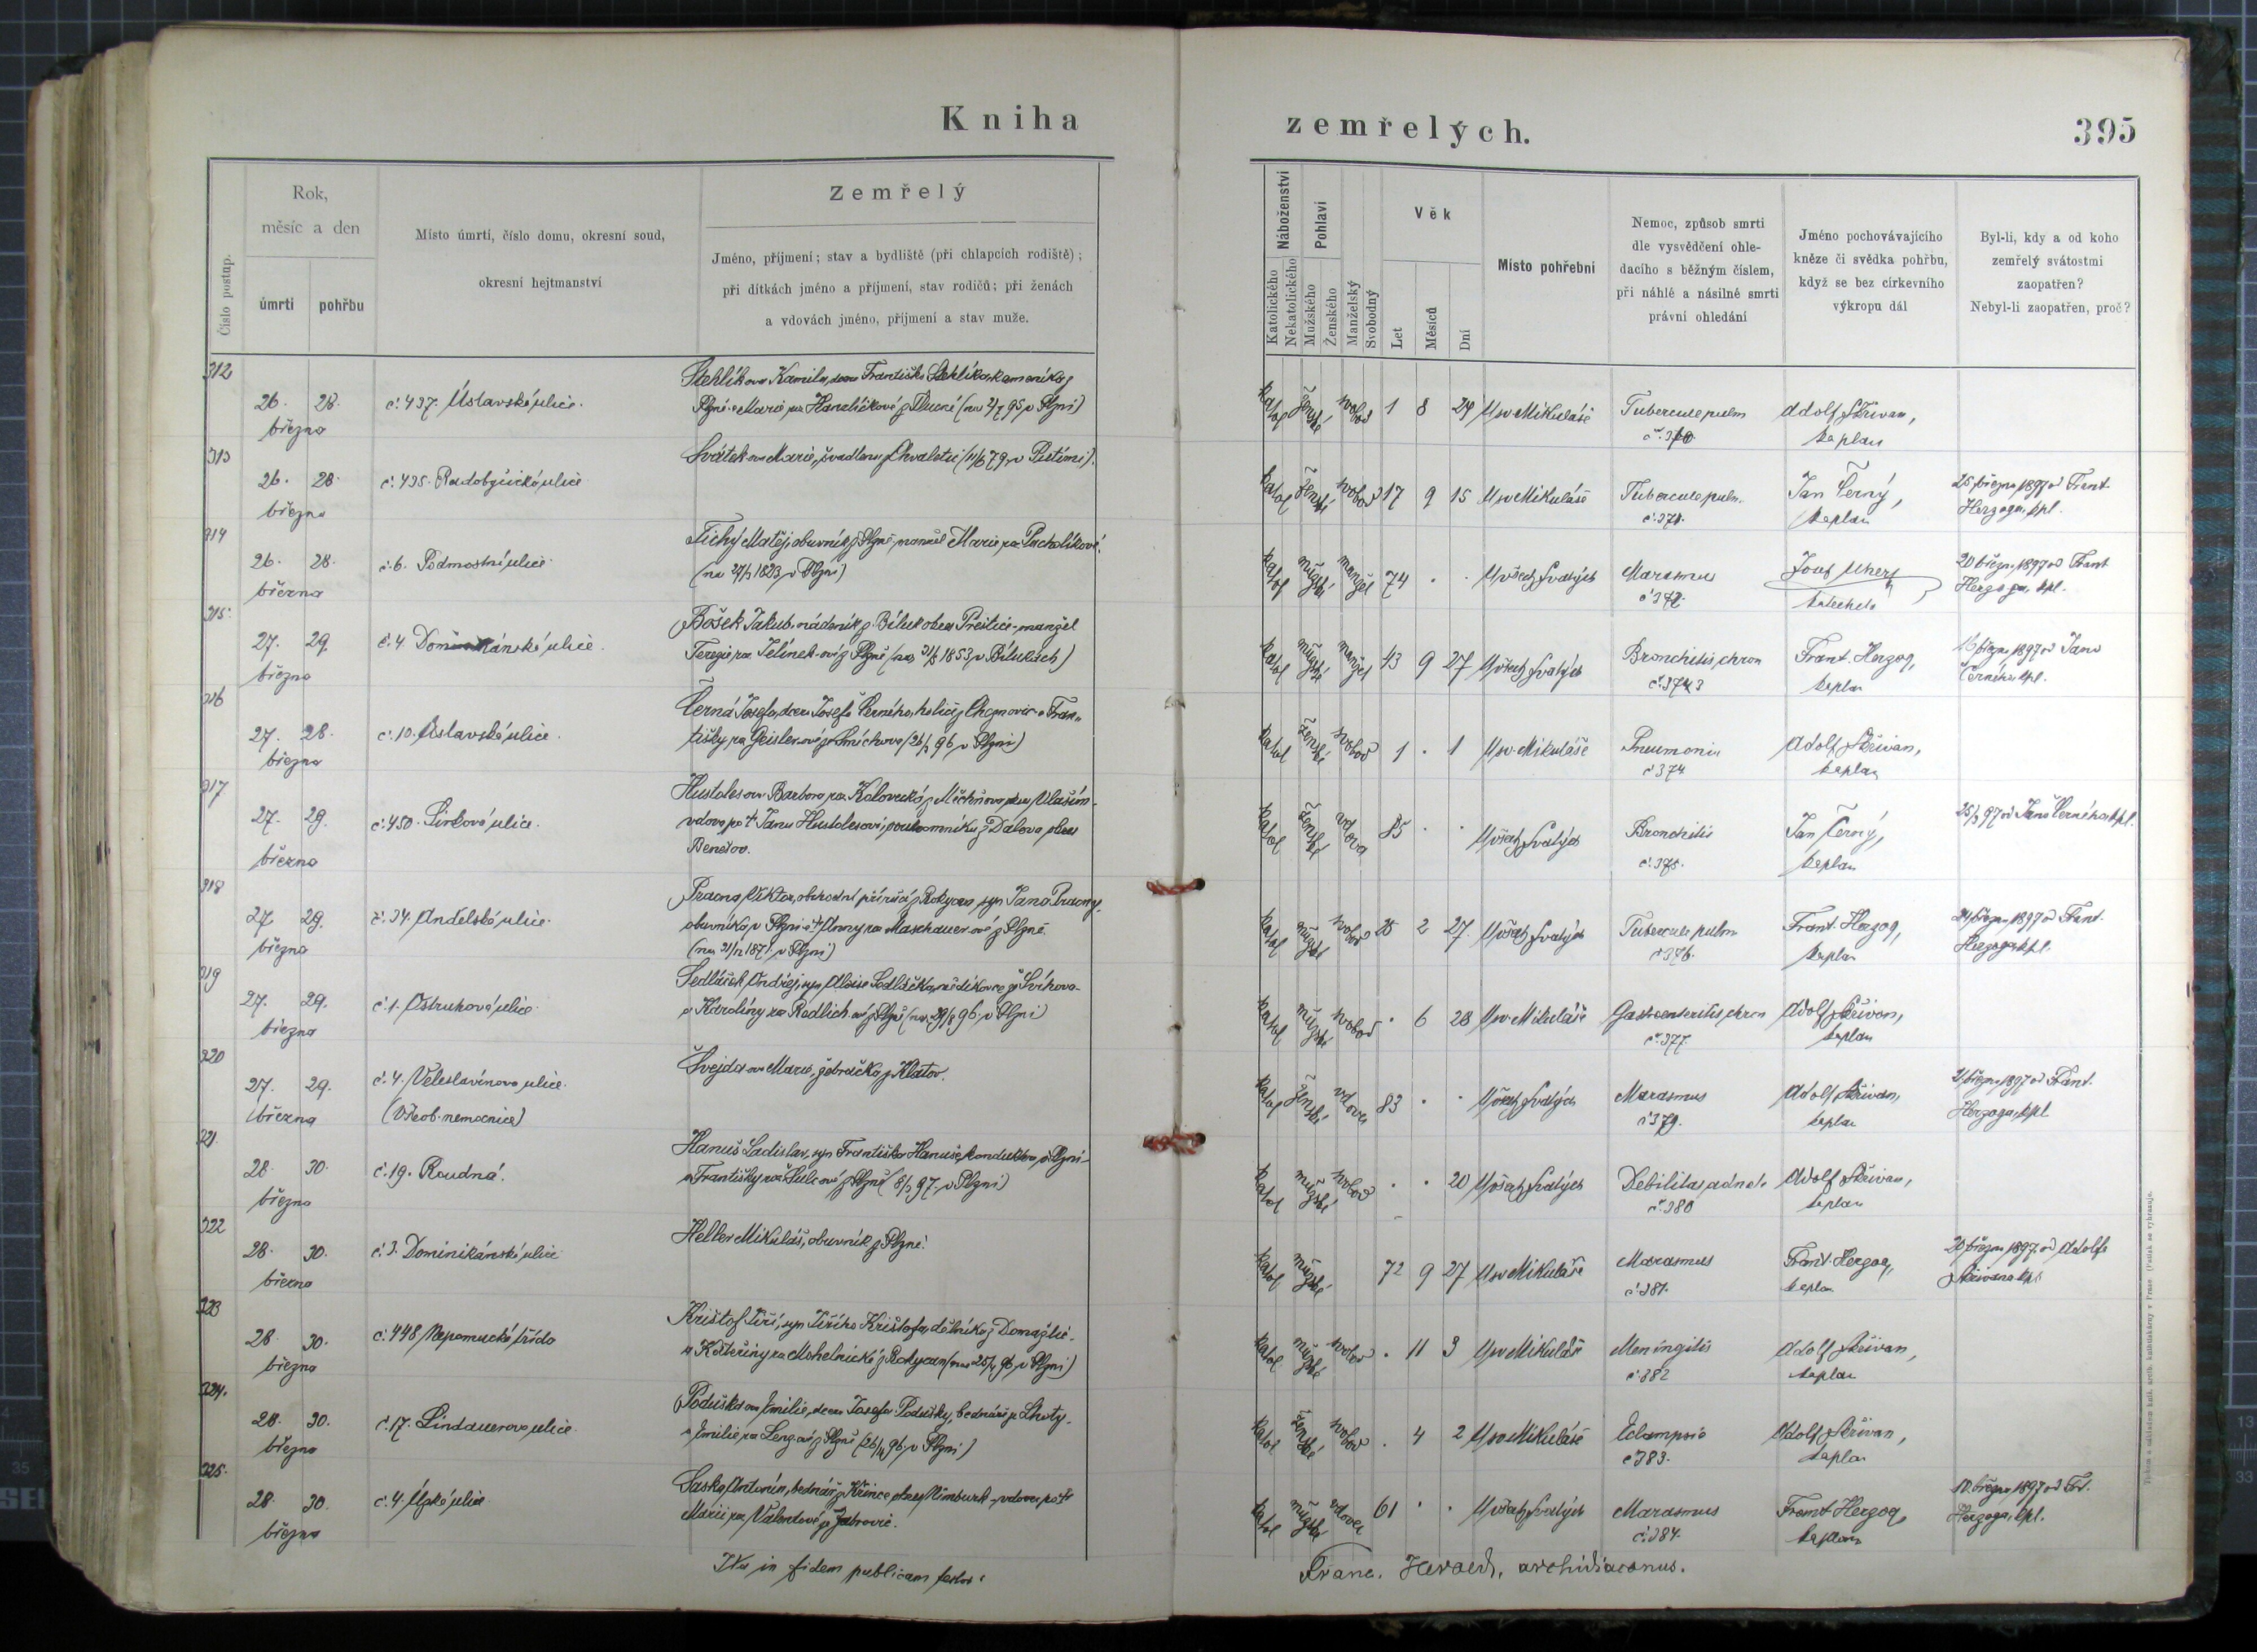 Kniha
zemřelých.
395
Číslo postup.
Rok,
měsíc a den
úmrtí
pohřbu
Místo úmrtí, číslo domu, okresní soud,
okresní hejtmanství
Zemřelý
Jméno, příjmení; stav a bydliště (při chlapcích rodiště);
při dítkách jméno a příjmení, stav rodičů; při ženách
a vdovách jméno, příjmení a stav muže.
Náboženství
Katolického
Nekatolického
Pohlaví
Mužského
Ženského
Manželský
Svobodný
Věk
Let
Měsíců
Dní
Místo pohřební
Nemoc, způsob smrti
dle vysvědčení ohle-
dacího s běžným číslem,
při náhlé a násilné smrti
právní ohledání
Jméno pochovávajícího
kněze či svědka pohřbu,
když se bez církevního
výkropu dál
Byl-li, kdy a od koho
zemřelý svátostmi
zaopatřen?
Nebyl-li zaopatřen, proč?
312
26. 28. března
č. 437. Úslavská ulice.
Stehlíkova Kamila, dcera Františka Stehlíka, kameníka z
Plzně a Marie roz. Hanzlíčkové z Tlucné (nar. 2/7 95 v Plzni)
katol ženské svobod 1 8 24 U sv. Mikuláše
Tubercule pulm
Adolf Skřivan,
kaplan
313
26. 28. března
č. 435. Radobyčická ulice
Svátek ova Marie, švadlena z Chvaletic (11/6 79 v Putimi).
katol ženské svobod 17 9 15 U sv Mikuláše
Tubercule pulm.
č. 371.
Jan Černý,
kaplan
25 března 1897 od Frant.
Herzoga, kpl.
314
26. 28. března
č. 6. Podmostní ulice
Tichý Matěj, obuvník z Plzně, manžel Marie roz. Pacholíkové.
(na 24/2 1823 v Plzni)
katol mužské manžel 74 . . U všech svatých
Marasmus
č 372.
Josef Uherk
katecheta
20 března 1897 od Frant
Herzoga, kpl.
315.
27. 29. března
č. 4. Dominikánská ulice.
Bošek Jakub, nádeník z Bíluk okres Přeštice, manžel
Terezie roz. Jelínek-ové z Plzně (nar. 31/5 1853 v Bílukách)
katol mužské manžel 43 9 27 U všech svatých
Bronchitis, chron
Frant. Herzog,
kaplan
16 března 1897 od Jana
Černého kpl.
316
27. 28. března
č. 10. Úslavská ulice.
Černá Josefa, dcera Josefa Černého, holiče z Chcznovic a Fran-
tišky roz Geisler-ové ze Smíchova (26/2 96 v Plzni)
katol ženské svobod 1 . 1 U sv. Mikuláše
Pneumonia
č 374
Adolf Skřivan,
kaplan
317
27. 29. března
č. 450. Sirková ulice.
vdova po † Janu Hustolesovi,
Benešov.
katol ženské vdova 85 . . U všech svatých
Bronchitis
č. 375.
Jan Černý,
kaplan
25/3 97 od Jana Černého kpl.
318
27. 29. března
č. 34. Andelská ulice.
Pracna Viktor, obchodní příručí z Rokycan, syn Jana Pracny,
obuvníka v Plzni a † Anny roz Maschauer-ové z Plzně.
(nar. 31/12 1871 v Plzni)
katol mužské svobod 25 2 27 U všech svatých
Tubercule pulm
č 376.
Frant. Herzog,
kaplan
24 března 1897 od Frant.
Herzoga kpl.
319
27. 29. března
č. 1. Ostruhová ulice.
Sedláček Ondřej, syn Aloise Sedláčka, ze Švihova
a Karolíny roz Redlich-ové z Plzně (nar. 29/8 96 v Plzni)
katol mužské svobod . 6 28 U sv. Mikuláše
Gastroenteritis, chron
č. 377.
Adolf Skřivan,
kaplan
320
27. 29. března
č. 4. Veleslavínova ulice.
(Všeob. nemocnice)
Švejda ova Marie, žebračka z Klatov.
katol ženské vdova 83 . . U všech svatých
Marasmus
č 379.
Adolf Skřivan,
kaplan
21 března 1897 od Frant.
Herzoga, kpl.
321.
28. 30. března
č. 19. Roudná.
Hanuš Ladislav, syn Františka Hanuše, konduktora v Plzni
a Františky roz Šulc-ové z Plzně (8/3 97 v Plzni)
katol mužské svobod . . 20 U všech svatých
Debilitas adnat.
č. 380
Adolf Skřivan,
kaplan
322
28. 30. března
č. 3. Dominikánská ulice
Heller Mikuláš, obuvník z Plzně.
katol mužské 72 9 27 U sv Mikuláše
Marasmus
č. 381.
Frant. Herzog,
kaplan
20 března 1897 od Adolfa
Skřivana kpl.
323
28. 30. března
č. 448 Nepomucká třída
Krištof Jiří, syn Jiřího Krištofa, dělníka z Domažlic
a Kateřiny roz Mohelnické z Rokycan (nar 25/4 96 v Plzni)
katol mužské svobod . 11 3 U sv Mikuláše
Meningitis
č. 382
Adolf Skřivan,
kaplan
324.
28. 30. března
č. 17. Lindauerova ulice.
Poduška ova Emilie, dcera Josefa Podušky, bednáře ze Lhoty
a Emilie roz Lenz-ové z Plzně (26/11 96 v Plzni)
katol ženské svobod . 4 2 U sv Mikuláše
Eclampsia
č 383.
Adolf Skřivan,
kaplan
325.
28. 30. března
č. 4. Úzká ulice
Saska Antonín, bednář z Křince okres Nimburk, vdovec po †
Marii roz Valentové z Jabrovic.
katol mužské vdovec 61 . . U všech svatých
Marasmus
č. 384.
Frant. Herzog,
kaplan
12 března 1897 od Fr.
Herzoga, kpl.
Ita in fidem publicam testor:
Franc. Herold, archidiaconus.